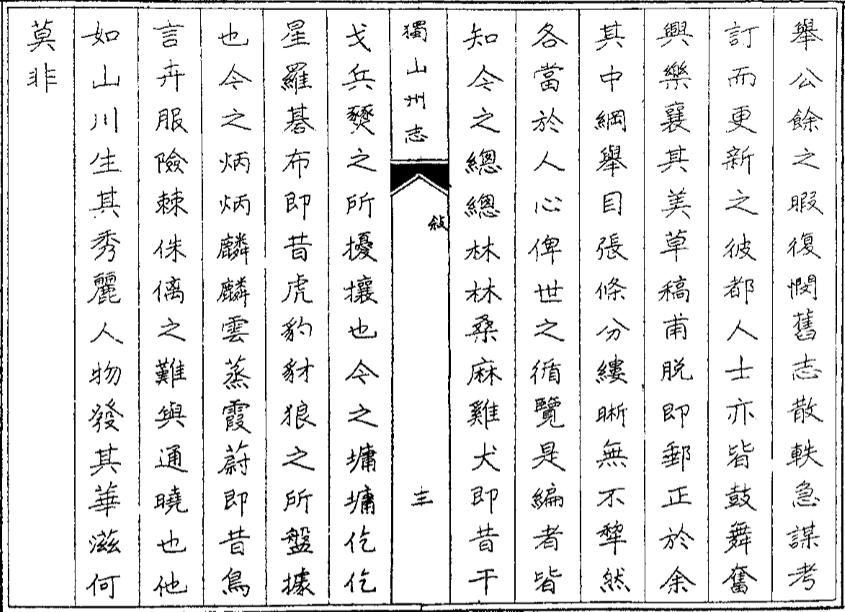 舉公餘之暇復憫舊志散軼急謀考
訂而更新之彼都人士亦皆鼓舞奮
興樂襄其美草稿甫脱即郵正於余
其中綱舉目張條分縷晰無不犂然
各當於人心俾世之循覽是編者皆
知今之總總林林桑麻雞犬即昔干
獨山州志
敍
三
戈兵燹之所擾攘也今之墉墉仡仡
星羅碁布即昔虎豹豺狼之所盤據
也今之炳炳麟麟雲蒸霞蔚即昔鳥
言卉服險棘侏𠌯之難與通曉也他
如山川生其秀麗人物發其華滋何
莫非